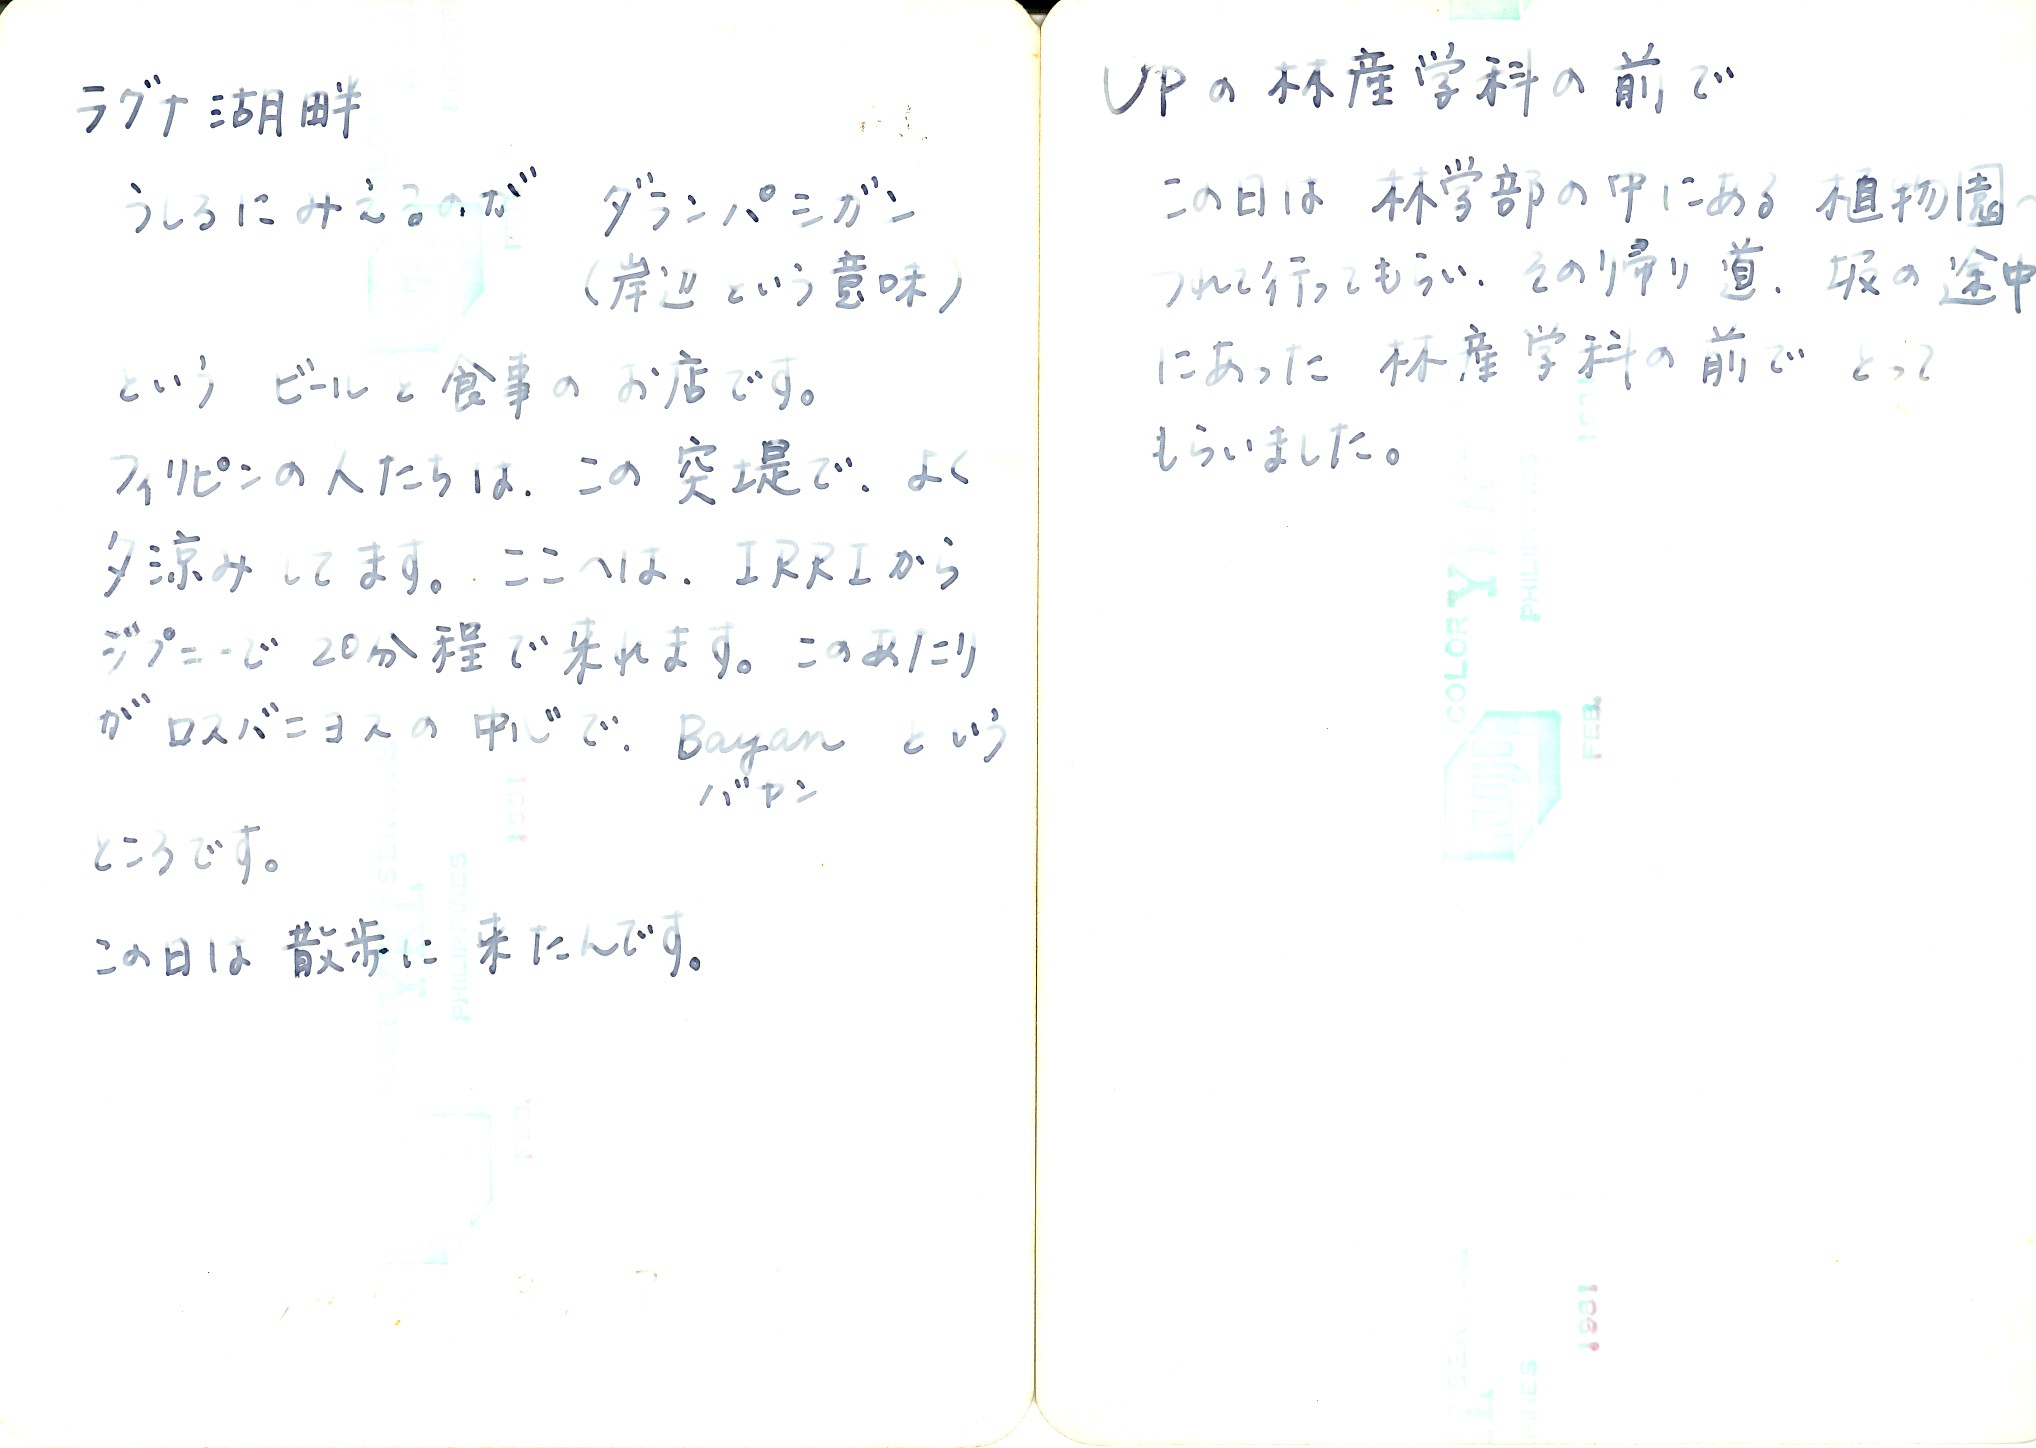 ラグナ湖畔
うしろにみえるのが ダランパシガン
(岸辺という意味)
という ビールと食事の お店です。
フィリピンの人たちは、この突堤で、よく
夕涼みしてます。ここへは、IRRIから
ジプニーで 20分程で来れます。このあたり
が ロスバニヨスの 中心で、Bayan という
バヤン
ところです。
この日は 散歩に 来たんです。
UPの林産学科の前で
この日は 林学部の中にある 植物園へ
つれて行ってもらい、その帰り道、坂の途中
にあった 林産学科の前で とって
もらいました。
COLOR
PHILIPPINES
FUJI
FEB.
1981